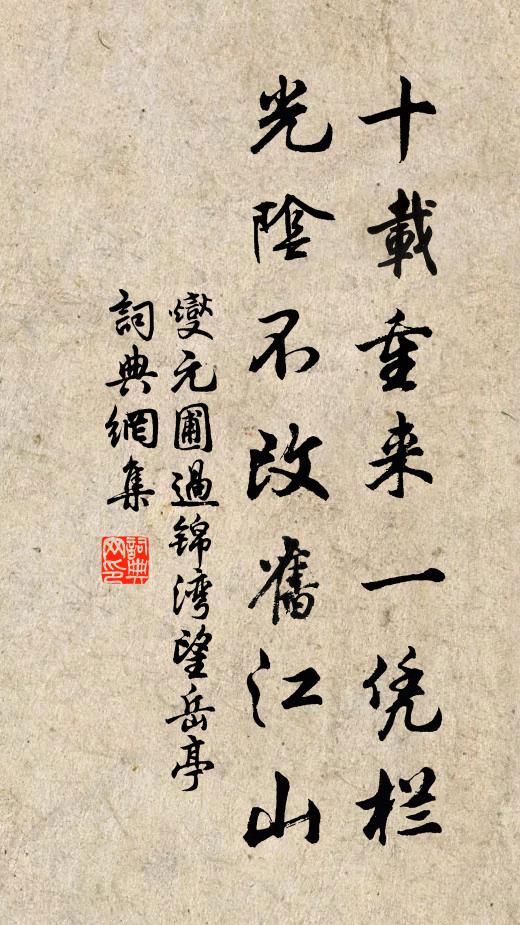 十載重来一凭栏
光陰不改舊江山
燮元圃過锦湾望岳亭
詞典網集
詞典网印